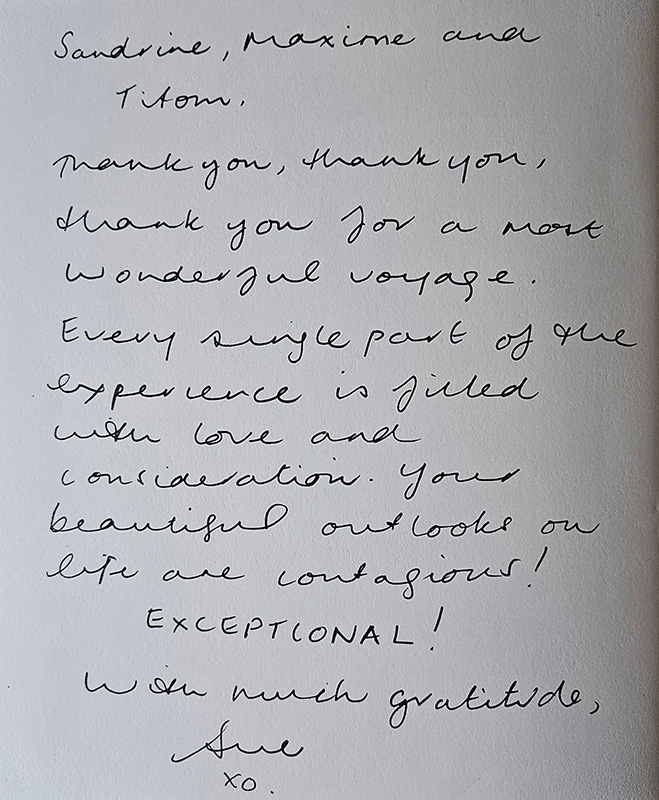 Sandrine, Maxime and
Titom.
Thank you, thank you,
thank you for a most
wonderful voyage.
Every single part of the
experience is filled
with love and
consideration. Your
beautiful outlooks on
life are contagious!
EXCEPTIONAL!
With much gratitude,
Sue
xo.